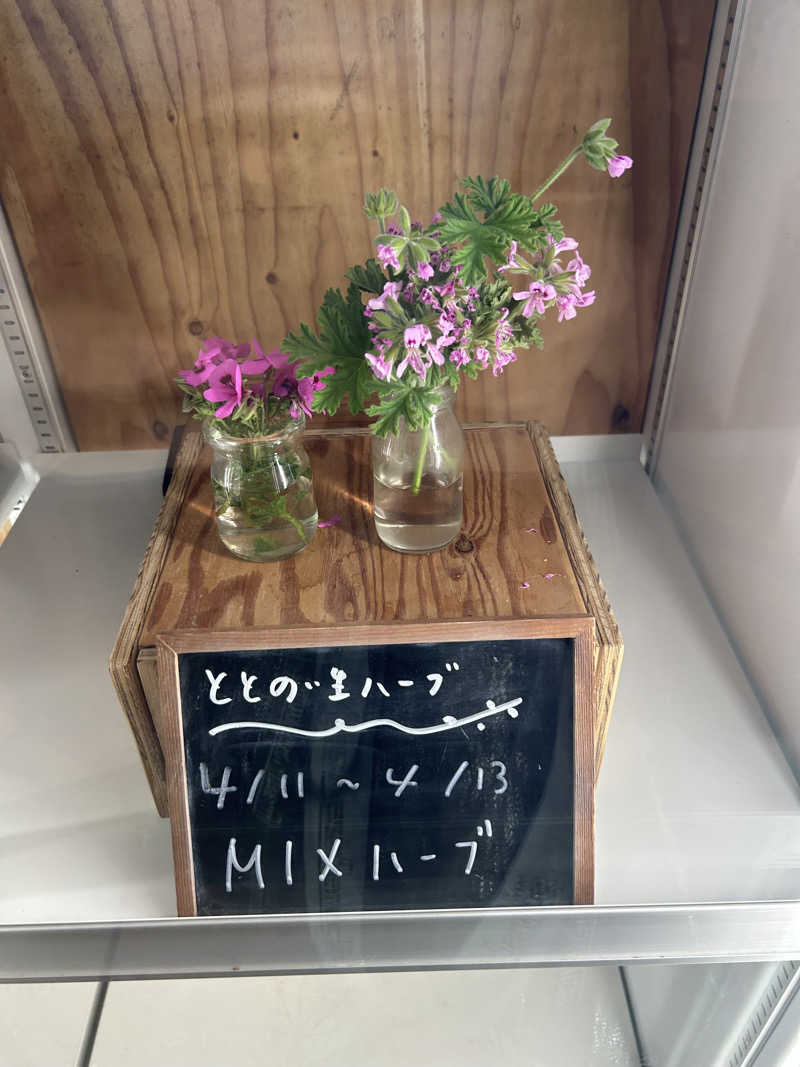 ととの゛生ハーブ
4/11～4/13
MIXハーブ